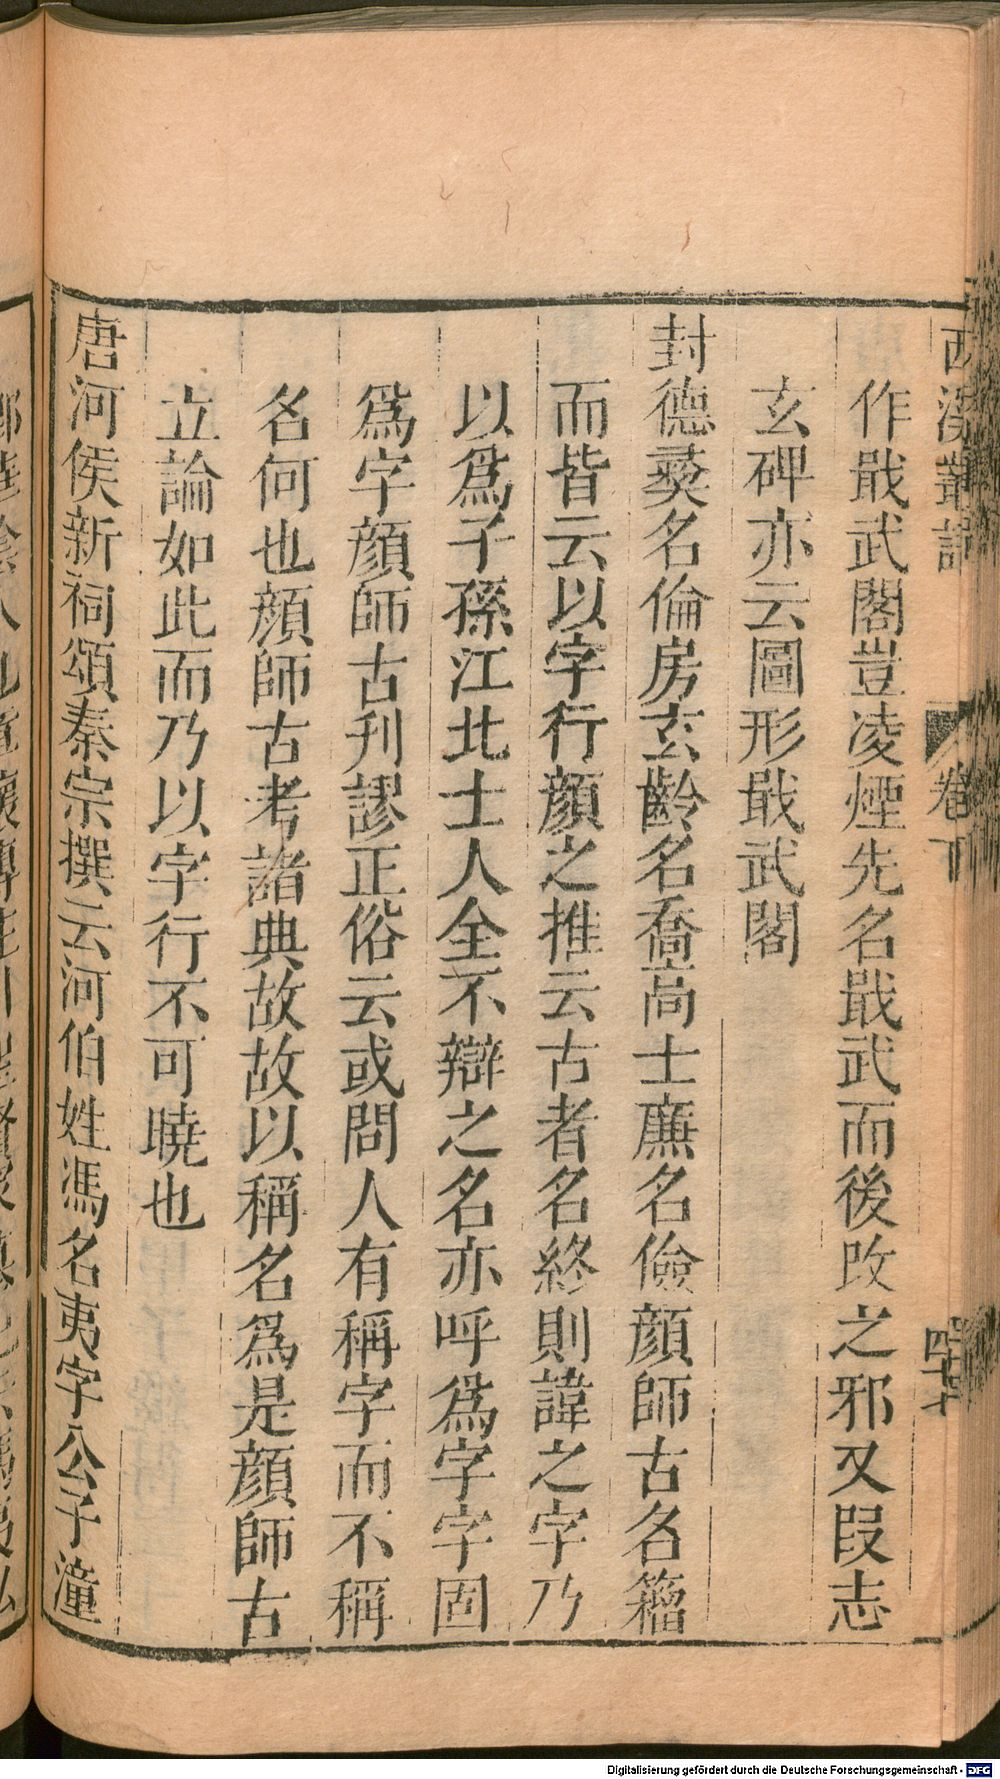 西溪叢語 卷下 四十七
作戢武閣豈凌煙先名戢武而後改之邪又段志
玄碑亦云圖形戢武閣
封德彛名倫房玄齡名喬高士廉名儉顔師古名籀
而皆云以字行顔之推云古者名終則諱之字乃
以爲子孫江北士人全不辯之名亦呼爲字字固
爲字顔師古刋謬正俗云或問人有稱字而不稱
名何也顔師古考諸典故故以稱名爲是顔師古
立論如此而乃以字行不可曉也
唐河侯新祠頌秦宗撰云河伯姓馮名夷字公子潼
Digitalisierung gefördert durch die Deutsche Forschungsgemeinschaft - DFG